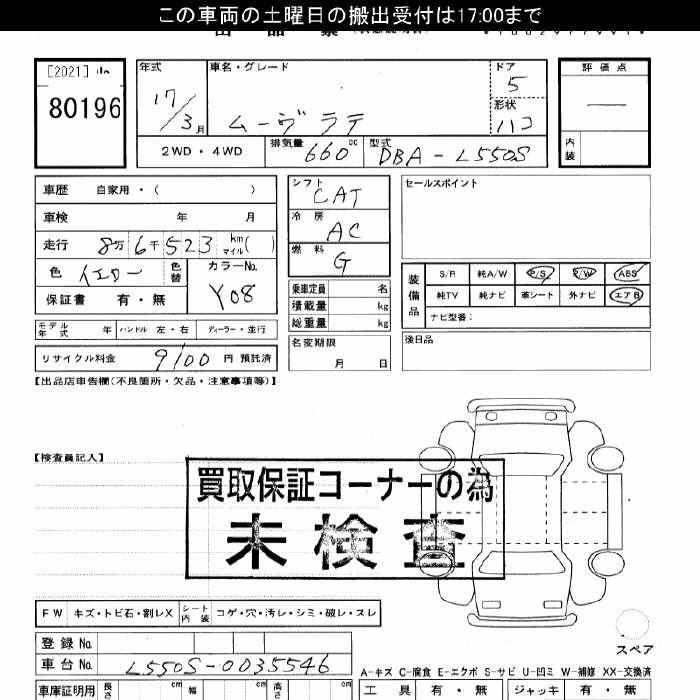 この車両の土曜日の搬出受付は17:00まで
出 品 票
[2021]
80196
年式
17/3月
車名・グレード
ムーヴ ラテ
ドア
5
形状
ハコ
評 価 点
―
内装
2WD ・ 4WD
排気量 660 cc
型式 DBA-L550S
車歴 自家用・( )
車検 年 月
走行 8万6千523 km マイル( )
色 イエロー
色替
カラーNo. Y08
保証書 有・無
モデル年式 年 ハンドル 左・右 ディーラー・並行
リサイクル料金 9100 円 預託済
シフト CAT
冷房 AC
燃料 G
乗車定員 名
積載量 kg
総重量 kg
名変期限
月 日
セールスポイント
装備品
S/R 純A/W P/S P/W ABS
純TV 純ナビ 革シート 外ナビ エアB
ナビ型番:
後日品
【出品店申告欄(不良箇所・欠品・注意事項等)】
【検査員記入】
買取保証コーナーの為
未検査
FW キズ・トビ石・割レX シート内装 コゲ・穴・汚レ・シミ・破レ・スレ
登録 No.
車台 No. L550S-0035546
スペア
A-キズ C-腐食 E-エクボ S-サビ U-凹ミ W-補修 XX-交換済
車庫証明用 長さ cm 幅 cm 高さ cm
工 具 有 ・ 無 ジャッキ 有 ・ 無